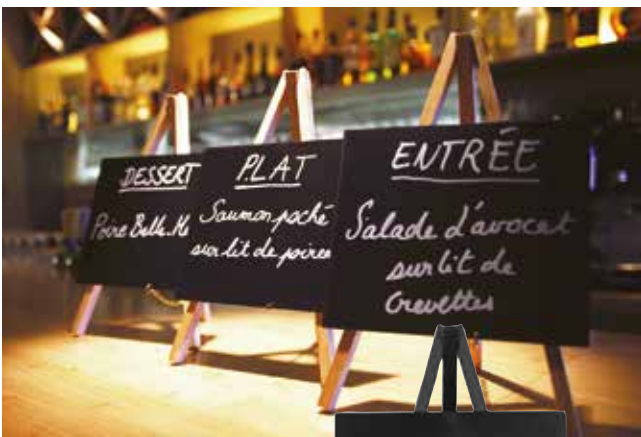 DESSERT
Poire Belle
PLAT
Saumon poché
sur lit de
ENTRÉE
Salade d'avocat
sur lit de
Crevettes